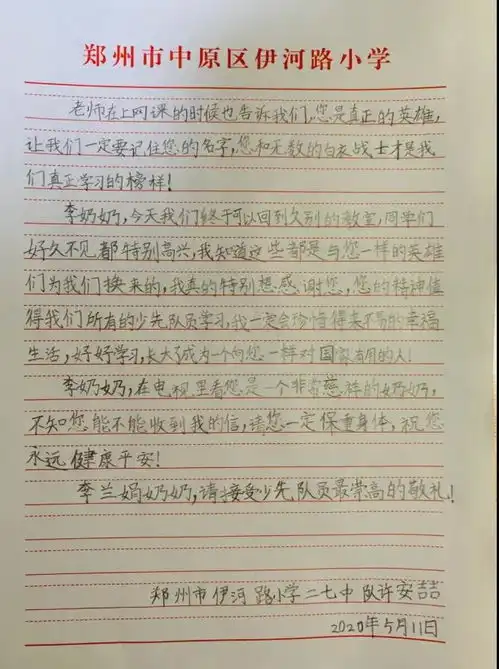 郑州市中原区伊河路小学
老师在上网课的时候也告诉我们,您是真正的英雄,
让我们一定要记住您的名字,您和无数的白衣战士才是我
们真正学习的榜样!
李奶奶,今天我们终于可以回到久别的教室,同学们
好久不见都特别高兴,我知道这些都是与您一样的英雄
们为我们换来的,我真的特别想感谢您,您的精神值
得我们所有的少先队员学习,我一定会珍惜得来不易的幸福
生活,好好学习,长大了成为一个向您一样对国家有用的人!
李奶奶,在电视里看您是一个非常慈祥的奶奶,
不知您能不能收到我的信,请您一定保重身体,祝您
永远健康平安!
李兰娟奶奶,请接受少先队员最崇高的敬礼!
郑州市伊河路小学二七中队许安喆
2020年5月11日